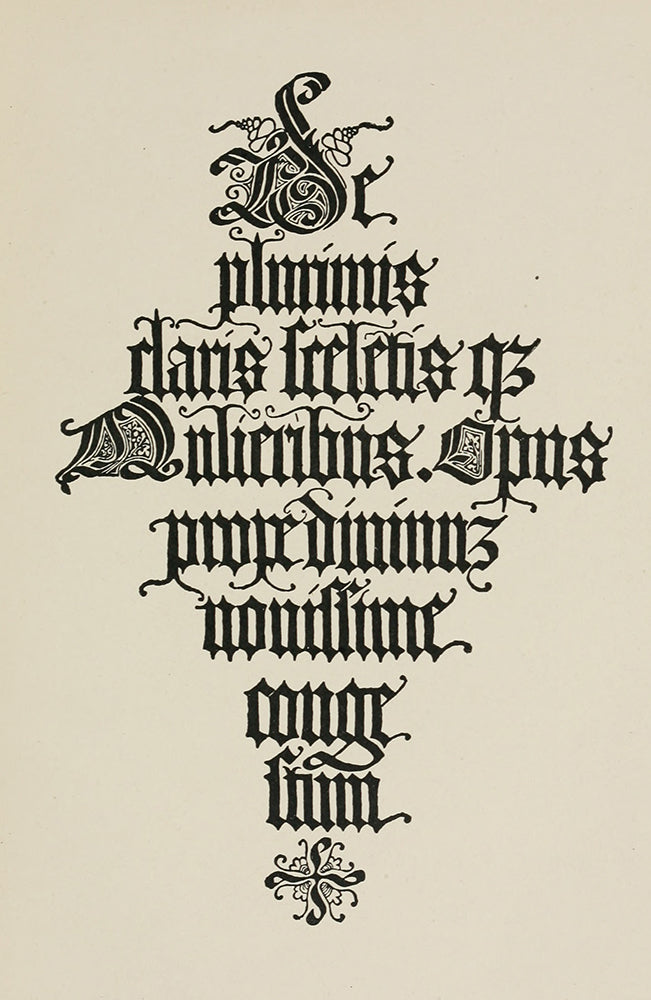 De
plurimis
claris ſceletis qz
Mulieribus. Opus
prope diuinuz
nouiſſime
conge
ſtum